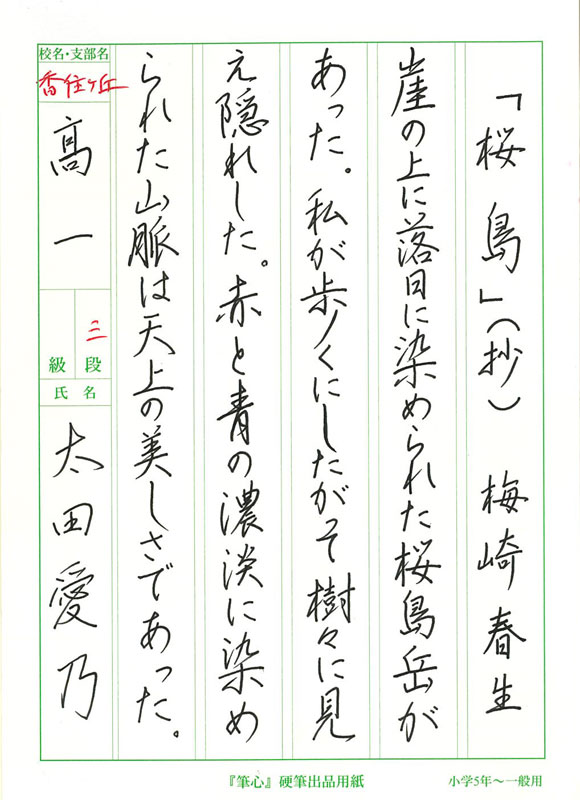 「桜島」(抄) 梅崎春生
崖の上に落日に染められた桜島岳が
あった。私が歩くにしたがって樹々に見
え隠れした。赤と青の濃淡に染め
られた山脈は天上の美しさであった。
校名・支部名
香住ヶ丘
高一
三段
級
氏名
太田愛乃
『筆心』硬筆出品用紙
小学5年～一般用